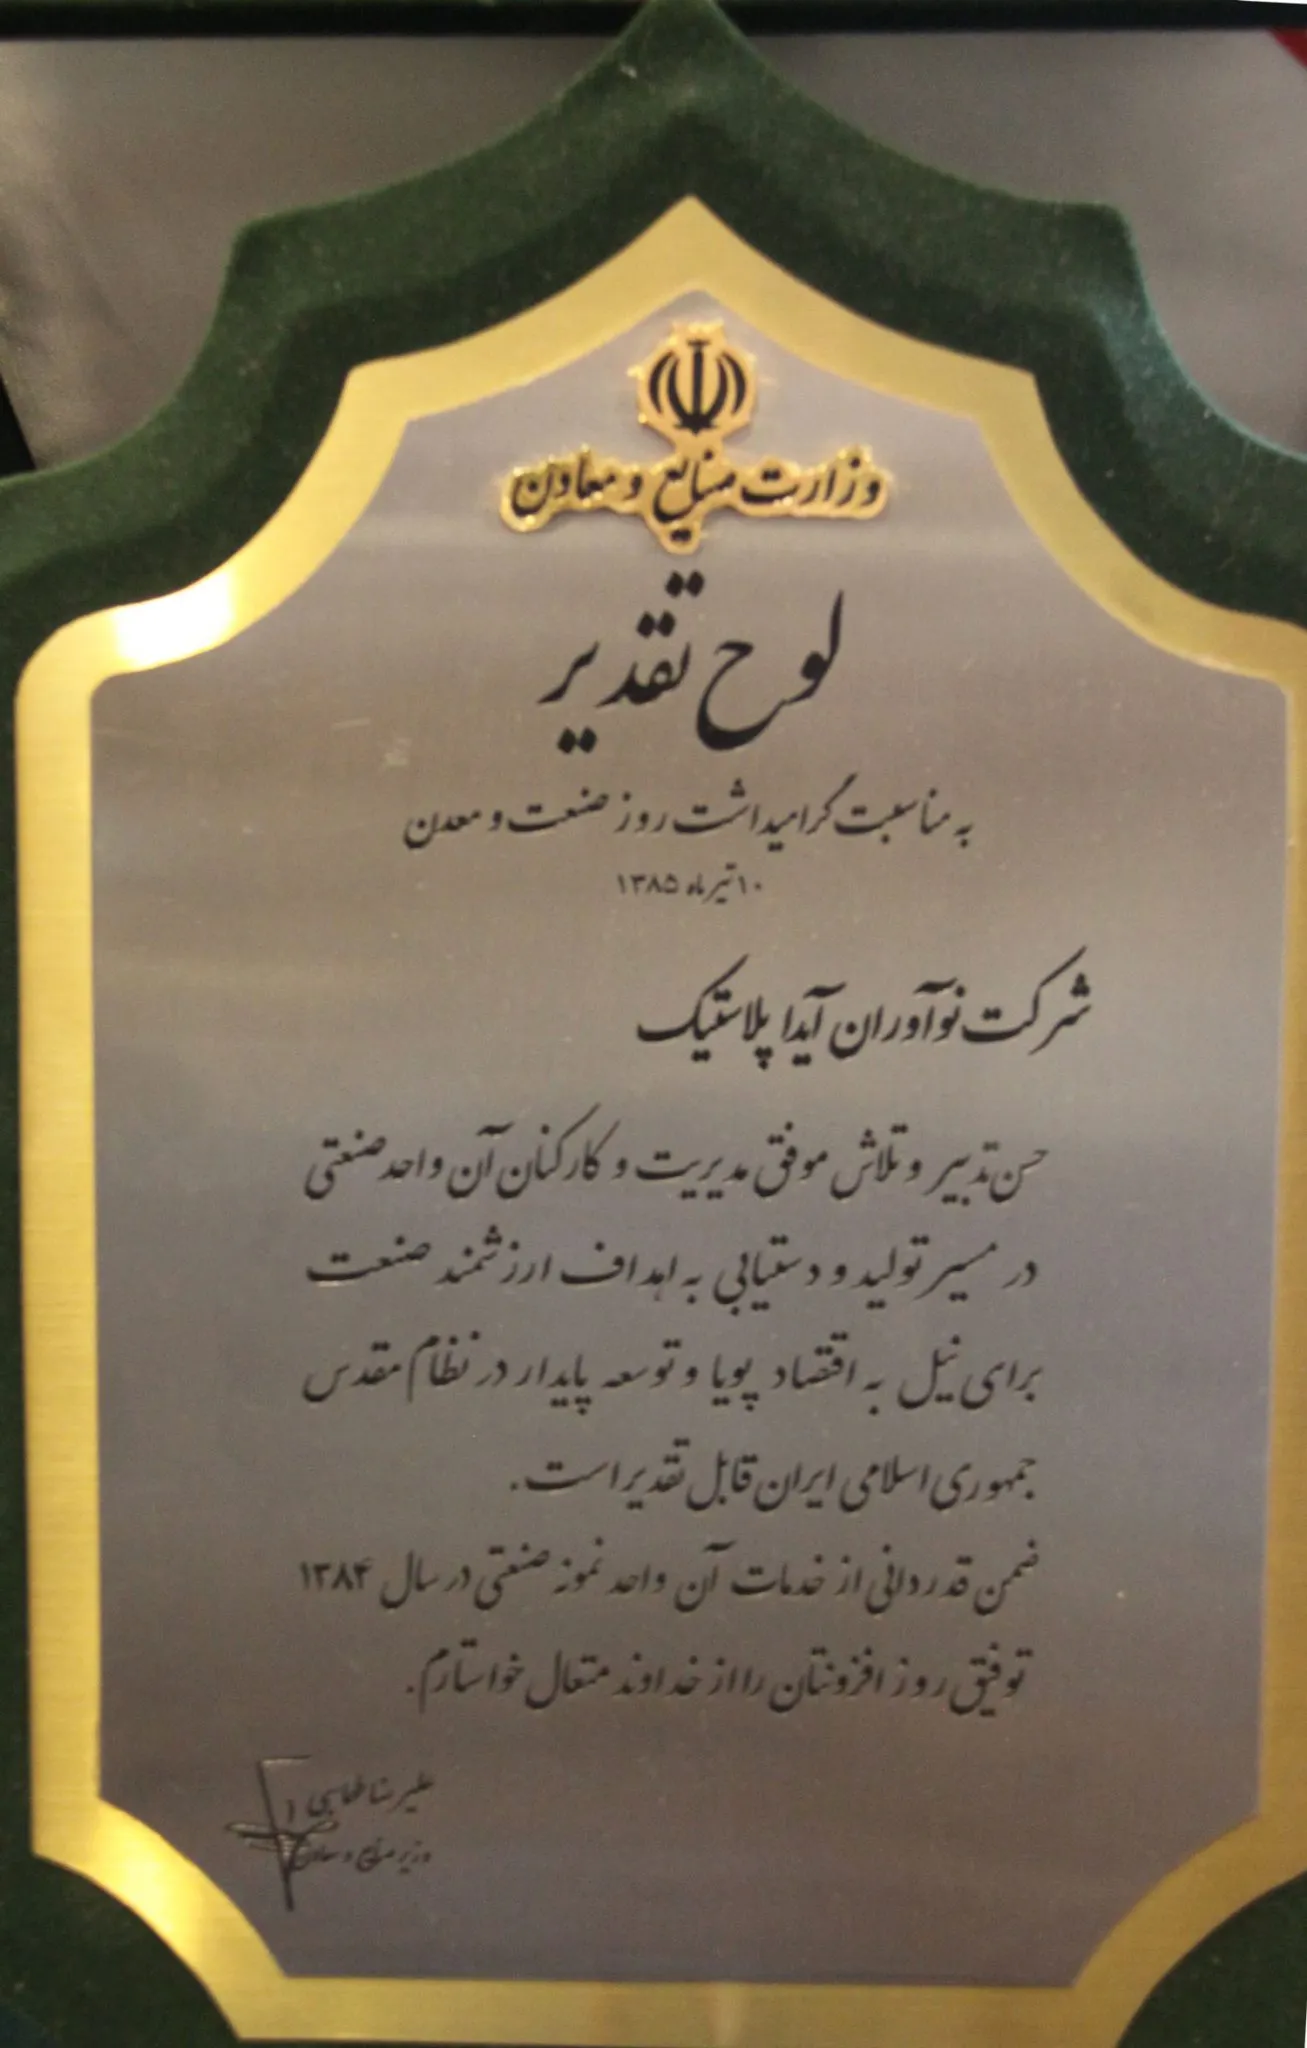 وزارت صنایع و معادن
لوح تقدیر
به مناسبت گرامیداشت روز صنعت و معدن
۱۰ تیر ماه ۱۳۸۵
شرکت نوآوران آیدا پلاستیک
حسن تدبیر و تلاش موفق مدیریت و کارکنان آن واحد صنعتی
در مسیر تولید و دستیابی به اهداف ارزشمند صنعت
برای نیل به اقتصاد پویا و توسعه پایدار در نظام مقدس
جمهوری اسلامی ایران قابل تقدیر است.
ضمن قدردانی از خدمات آن واحد نمونه صنعتی در سال ۱۳۸۴
توفیق روز افزونتان را از خداوند متعال خواستارم.
علیرضا طهماسبی
وزیر صنایع و معادن